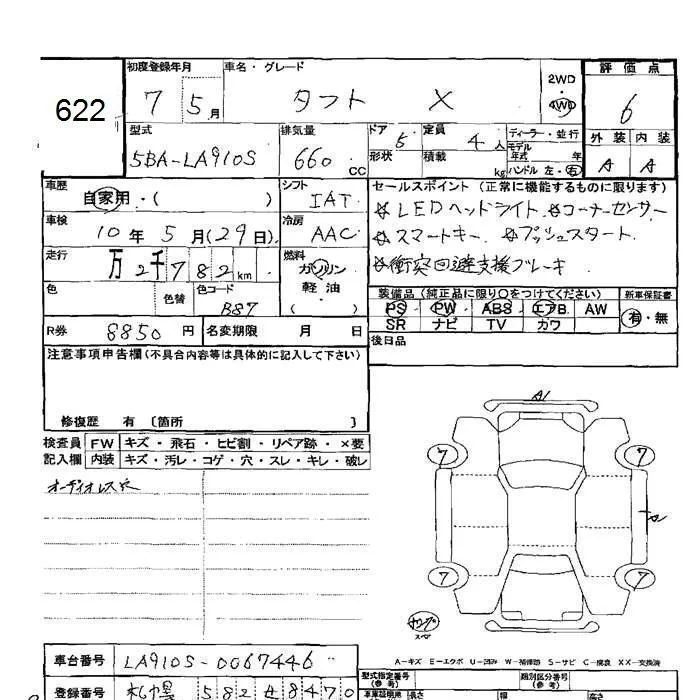 622
初度登録年月 車名・グレード 2WD 評価点
7 5月 タフト X 4WD 6
型式 排気量 ドア 5 定員 4人 ディーラー・並行 外装 内装
5BA-LA910S 660 CC 形状 積載 kg モデル年式 年 ハンドル 左・右 A A
車歴 自家用・( ) シフト IAT セールスポイント (正常に機能するものに限ります)
車検 10年5月(29日) 冷房 AAC ☆LEDヘッドライト ☆コーナーセンサー
☆スマートキー ☆プッシュスタート
走行 万 2千782km 燃料 ガソリン ☆衝突回避支援ブレーキ
軽油・
色 色替 色コード B87 ( )
装備品 (純正品に限り○をつけてください) 新車保証書
PS PW ABS エアB. AW 有・無
SR ナビ TV カワ
R券 8850円 名変期限 月 日
後日品
注意事項申告欄(不具合内容等は具体的に記入して下さい)
修復歴 有 〔箇所 〕
検査員 FW キズ・飛石・ヒビ割・リペア跡・×要
記入欄 内装 キズ・汚レ・コゲ・穴・スレ・キレ・破レ
オーディオレス穴
A1
7 7
A
7 7
スペア
A-キズ E-エクボ U-凹み W-補修跡 S-サビ C-腐食 XX-交換済
車台番号 LA910S-0067446
型式指定番号(参考) 類別区分番号(参考)
登録番号 札幌 582 8470
長さ 幅 高さ